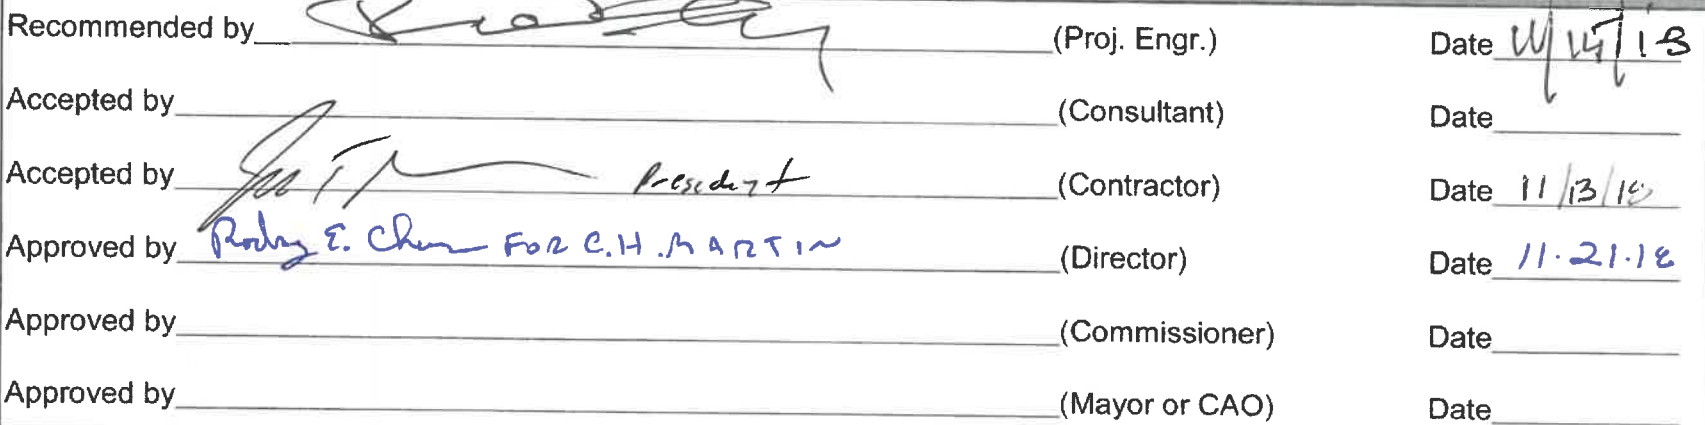 Recommended by (Proj. Engr.) Date 11/15/18
Accepted by (Consultant) Date
Accepted by President (Contractor) Date 11/13/18
Approved by E. FOR C.H. MARTIN (Director) Date 11.21.18
Approved by (Commissioner) Date
Approved by (Mayor or CAO) Date